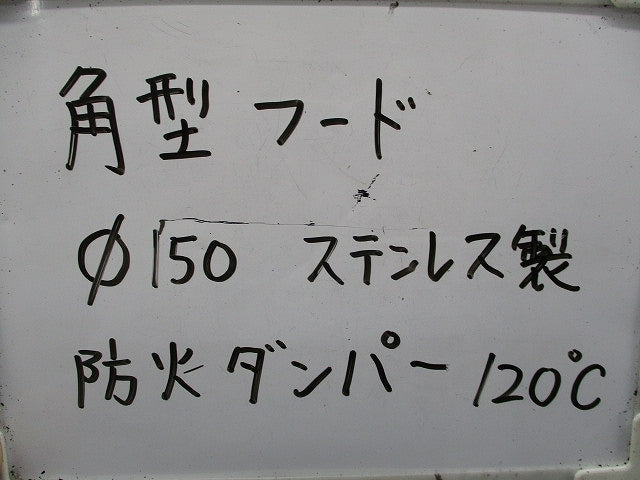 角型 フード
Φ150 ステンレス製
防火ダンパー 120℃